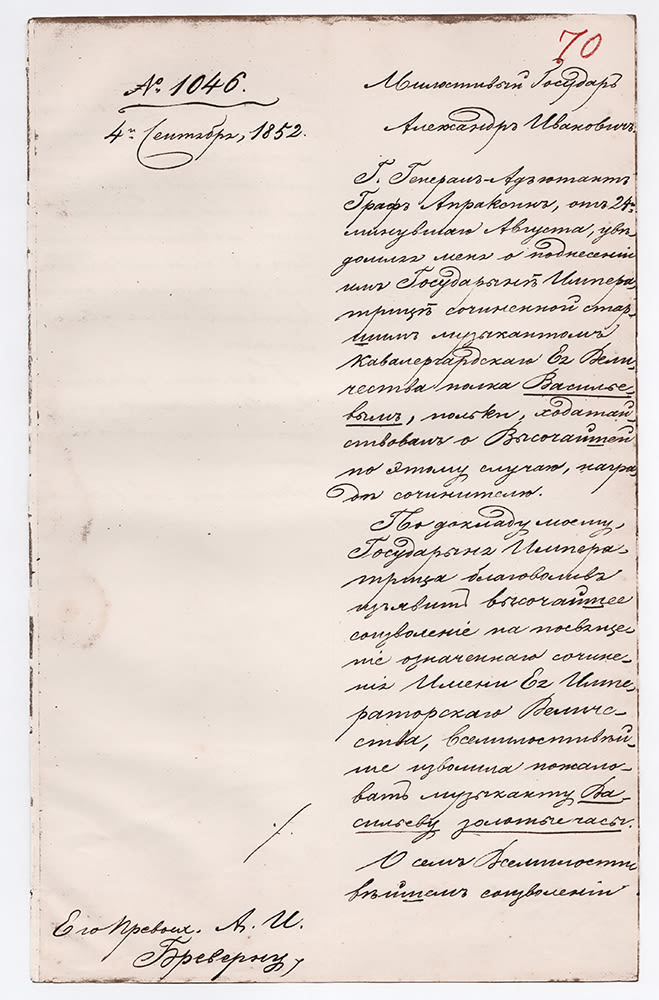 70
№ 1046.
4го Сентября, 1852.
Милостивый Государь
Александръ Ивановичъ.
Г. Генералъ-Адъютантъ
Графъ Апраксинъ, отъ 24го
минувшаго Августа, увѣ-
домилъ меня о поднесеніи
имъ Государынѣ Импера-
трицѣ сочиненной стар-
шимъ музыкантомъ
Кавалергардскаго Ея Вели-
чества полка Василье-
вымъ, польки, ходатай-
ствовалъ о Высочайшей
по этому случаю, награ-
дѣ сочинителю.
По докладу моему,
Государыня Импера-
трица благоволивъ
изъявить высочайшее
соизволеніе на посвяще-
ніе означеннаго сочине-
нія Имени Ея Импе-
раторскаго Величе-
ства, всемилостивѣй-
ше изволила пожало-
вать музыканту Ва-
сильеву золотые часы.
О семъ Всемилости-
вѣйшемъ соизволеніи
./.
Его Превосх. А. И.
Бреверну,